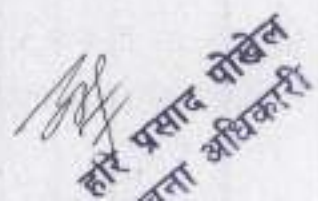 हरि प्रसाद पोखेल
अधिकारी